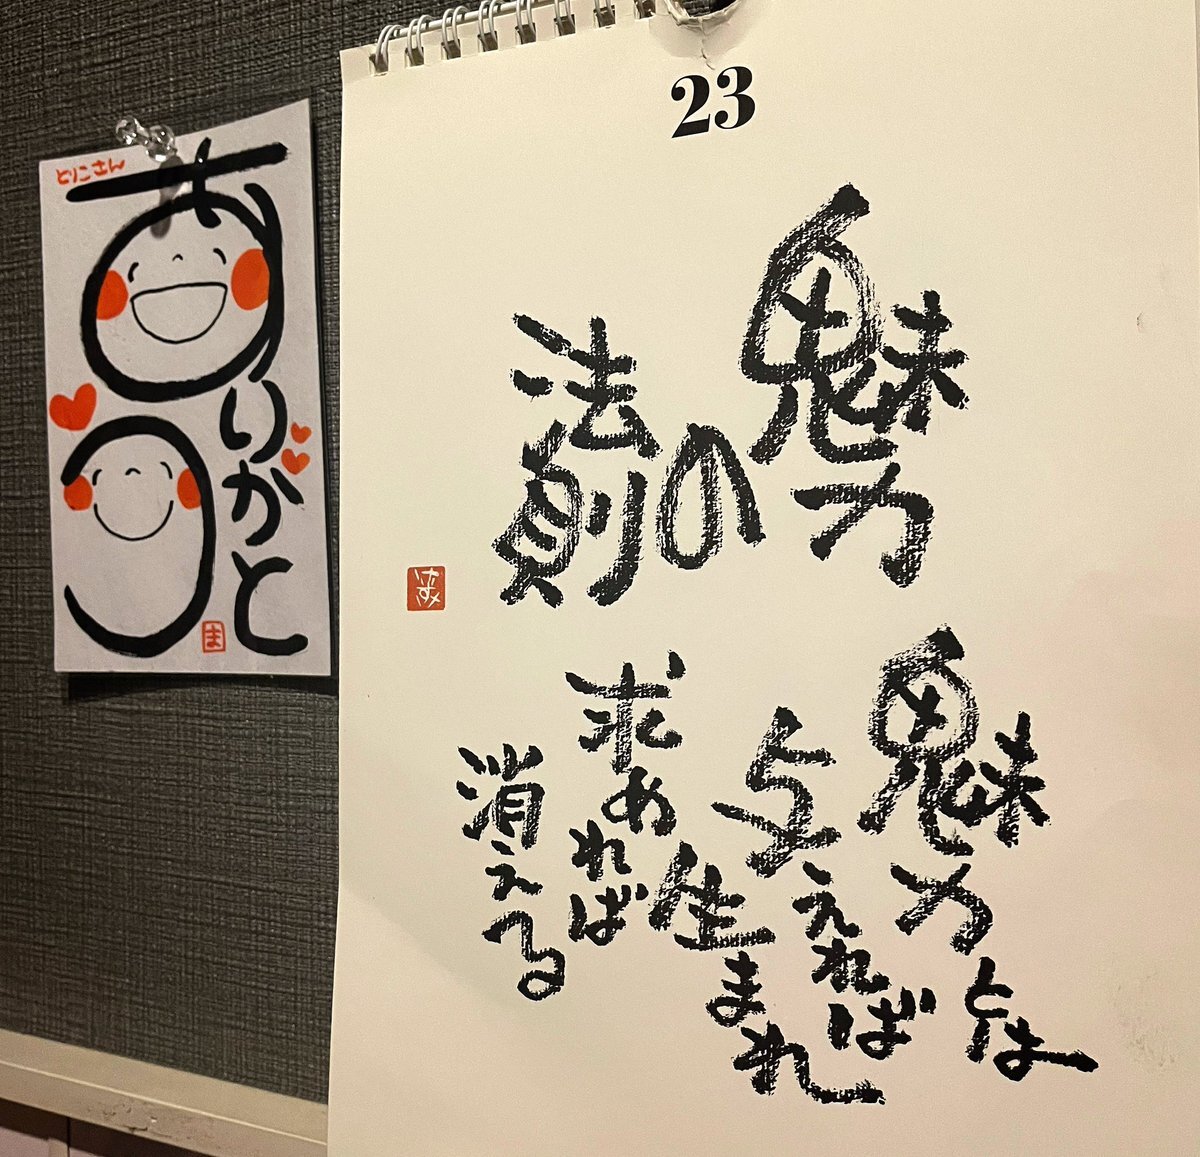 とりこさん
ありがとう
ま
23
魅力
の
法則
魅力とは
与えれば
生まれ
求めれば
消える